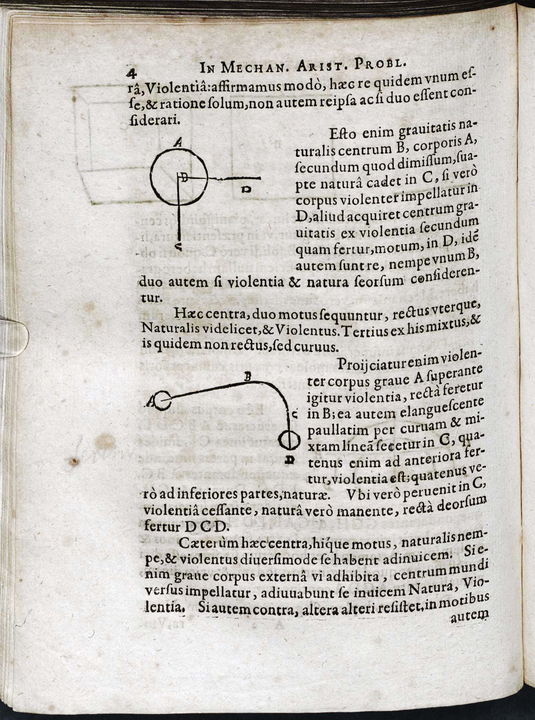 4
IN MECHAN. ARIST. PROBL.
râ, Violentiâ: affirmamus modò, hæc re quidem vnum es-
se, & ratione solum, non autem reipsa ac si duo essent con-
siderari.
A
B
D
C
Esto enim grauitatis na-
turalis centrum B, corporis A,
secundum quod dimissum, sua-
pte naturâ cadet in C, si verò
corpus violenter impellatur in
D, aliud acquiret centrum gra-
uitatis ex violentia secundum
quam fertur, motum, in D, idẽ
autem sunt re, nempe vnum B,
duo autem si violentia & natura seorsum considerен-
tur.
Hæc centra, duo motus sequuntur, rectus vterque,
Naturalis videlicet, & Violentus. Tertius ex his mixtus, &
is quidem non rectus, sed curuus.
A
B
C
D
Proijciatur enim violen-
ter corpus graue A superante
igitur violentia, rectâ feretur
in B; ea autem elanguescente
paullatim per curuam & mi-
xtam lineã feretur in C, qua-
tenus enim ad anteriora fer-
tur, violentia est; quatenus ve-
rò ad inferiores partes, naturæ. Vbi verò peruenit in C,
violentiâ cessante, naturâ verò manente, rectâ deorsum
fertur D C D.
Cæterùm hæc centra, hiq́ue motus, naturalis nem-
pe, & violentus diuersimode se habent adinuicem. Si e-
nim graue corpus externâ vi adhibita, centrum mundi
versus impellatur, adiuuabunt se inuicem Natura, Vio-
lentia. Si autem contra, altera alteri resistet, in motibus
autem